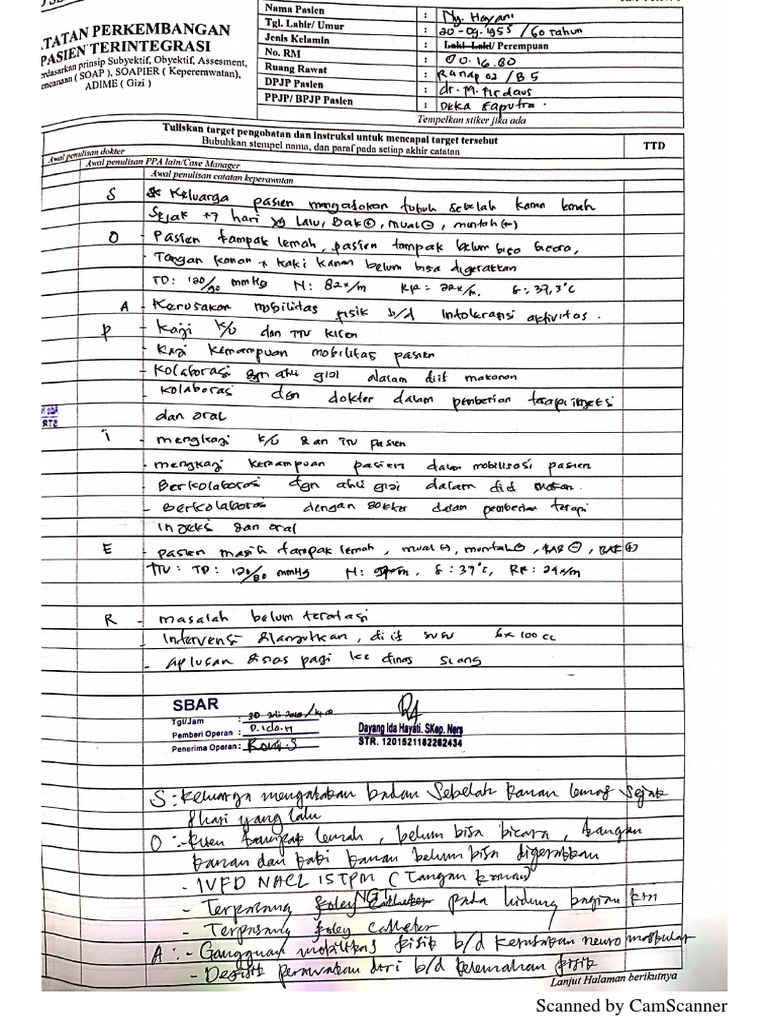 CATATAN PERKEMBANGAN
PASIEN TERINTEGRASI
berdasarkan prinsip Subyektif, Obyektif, Assesment,
encanaan ( SOAP ), SOAPIER ( Kepererrwatan),
ADIME ( Gizi )
Nama Pasien : Ny. Hayani
Tgl. Lahir/ Umur : 20-09-1955 / 60 tahun
Jenis Kelamin : Laki-Laki/ Perempuan
No. RM : 00.16.80
Ruang Rawat : Ranap 02 / B5
DPJP Pasien : dr. M. Firdaus
PPJP/ BPJP Pasien : Saputra
Tempelkan stiker jika ada
Tuliskan target pengobatan dan instruksi untuk mencapai target tersebut
Bubuhkan stempel nama, dan paraf pada setiap akhir catatan
TTD
Awal penulisan dokter
Awal penulisan PPA lain/Case Manager
Awal penulisan catatan keperawatan
S Keluarga pasien mengatakan tubuh sebelah kanan lemah
Sejak ±7 hari yg lalu, BAK (+), mual (-), muntah (-)
O - Pasien tampak lemah, pasien tampak belum bisa bicara,
- Tangan kanan + kaki kanan belum bisa digerakkan
TD: 120/90 mmHg N: 82x/m RR= 22x/m. S: 37,3°C
A - Kerusakan mobilitas fisik b/d Intoleransi aktivitas.
P - Kaji K/U dan TTV klien
- Kaji kemampuan mobilitas pasien
- Kolaborasi dgn ahli gizi dalam diit makanan
- Kolaborasi dgn dokter dalam pemberian terapi injeksi
dan oral
i - mengkaji K/U dan TTV pasien
- mengkaji kemampuan pasien dalam mobilisasi pasien
- Berkolaborasi dgn ahli gizi dalam diit makan.
- Berkolaborasi dengan dokter dalam pemberian terapi
Injeksi dan oral
E - pasien masih tampak lemah, mual (-), muntah (-), BAB (-), BAK (+)
TTV: TD: 120/80 mmHg N: S: 37°C, RR: 24x/m
R - masalah belum teratasi
- Intervensi dilanjutkan, diit susu 6x100 cc
- aplusan dinas pagi ke dinas siang
SBAR
Tgl/Jam : 30 Juli
Pemberi Operan : D. Ida. H
Penerima Operan :
Dayang Ida Hayati. SKep. Ners
STR. 1201521182262434
S : Keluarga mengatakan badan Sebelah kanan lemas sejak
8 hari yang lalu
O : - klien tampak lemah, belum bisa bicara, tangan
kanan dan kaki kanan belum bisa digerakkan
- IVFD NACL 15TPM (Tangan kanan)
- Terpasang NGT pada hidung bagian
- Terpasang foley catheter
A : - Gangguan mobilitas fisik b/d kerusakan neuro muskular
- Defisit perawatan diri b/d kelemahan fisik
Lanjut Halaman berikutnya
Scanned by CamScanner